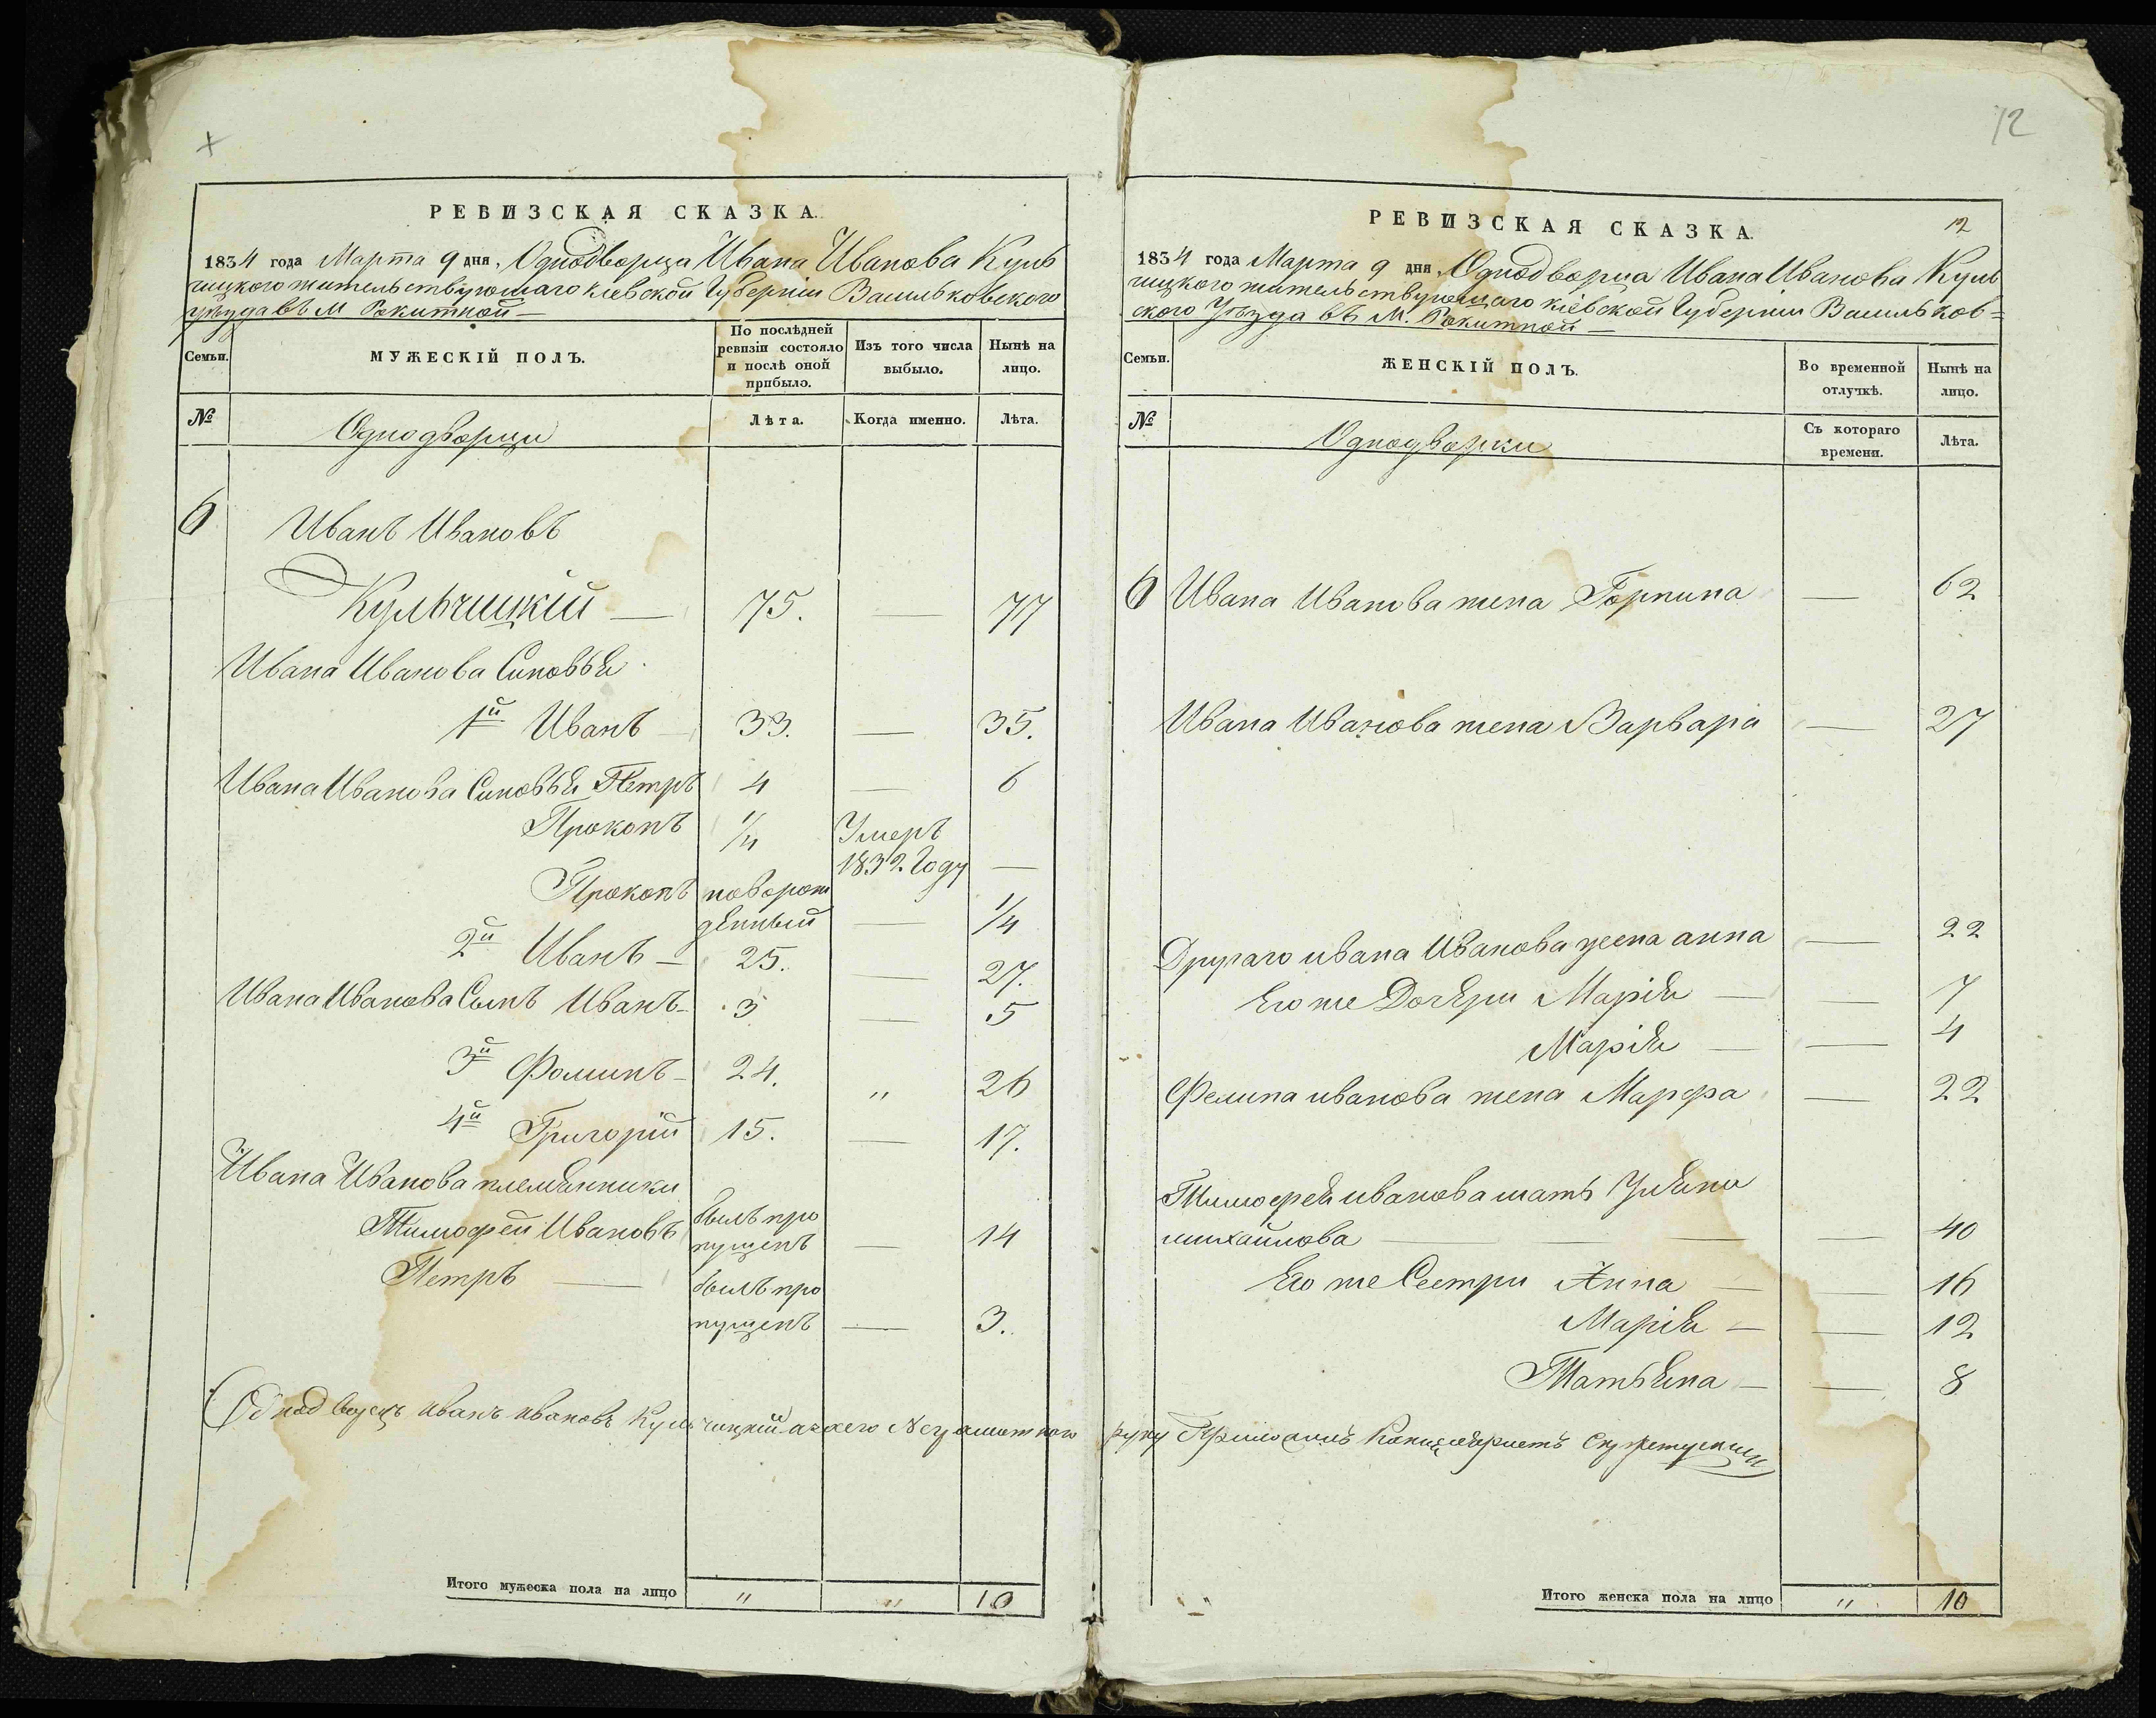 12
РЕВИЗСКАЯ СКАЗКА.
1834 года Марта 9 дня, Однодворца Ивана Иванова Куль
чицкого жительствующаго Кіевской Губерніи Васильковского
уѣзда въ М Рокитной —
Семьи.
МУЖЕСКІЙ ПОЛЪ.
По послѣдней
ревизіи состояло
и послѣ оной
прибыло.
Изъ того числа
выбыло.
Нынѣ на
лицо.
№
Однодворци
Лѣта.
Когда именно.
Лѣта.
6 Иванъ Ивановъ
Кульчицкій — 75. — 77
Ивана Иванова Синовья
1й Иванъ — 33. — 35.
Ивана Иванова Синовья Петръ 4 — 6
Прокопъ 1/4 Умеръ
1832 Году —
Прокопъ новорож
денный — 1/4
2й Иванъ — 25. — 27.
Ивана Иванова Сынъ Иванъ — 3 — 5
3й Фолинъ — 24. " 26
4й Григорій 15. — 17.
Ивана Иванова племянники
Тимофей Ивановъ былъ про
пущенъ — 14
Петръ — былъ про
пущенъ — 3.
Однодворецъ Иванъ Ивановъ Кульчицкій а за его Неграмотного
Итого мужеска пола на лицо " " 10
12
РЕВИЗСКАЯ СКАЗКА.
1834 года Марта 9 дня Однодворца Ивана Иванова Куль
чицкого жительствующаго Кіевской Губерніи Васильков=
ского Уѣзда въ М. Рокитной —
Семьи.
ЖЕНСКІЙ ПОЛЪ.
Во временной
отлучкѣ.
Нынѣ на
лицо.
№
Однодворки
Съ котораго
времени.
Лѣта.
6 Ивана Иванова жена Горпина — 62
Ивана Иванова жена Варвара — 27
Другаго ивана Иванова жена анна — 22
Его же Дочери Марія — — 7
Марія — — 4
Фелина иванова жена Марфа — 22
Тимофея иванова мать Уляна
михайлова — — 40
Его же Сестри Анна — — 16
Марія — — 12
Татьяна — — 8
руку Приложилъ Канцеляристъ
Итого женска пола на лицо " 10